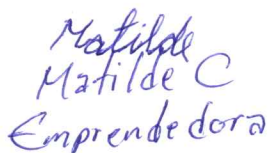 Matilde
Matilde C
Emprendedora